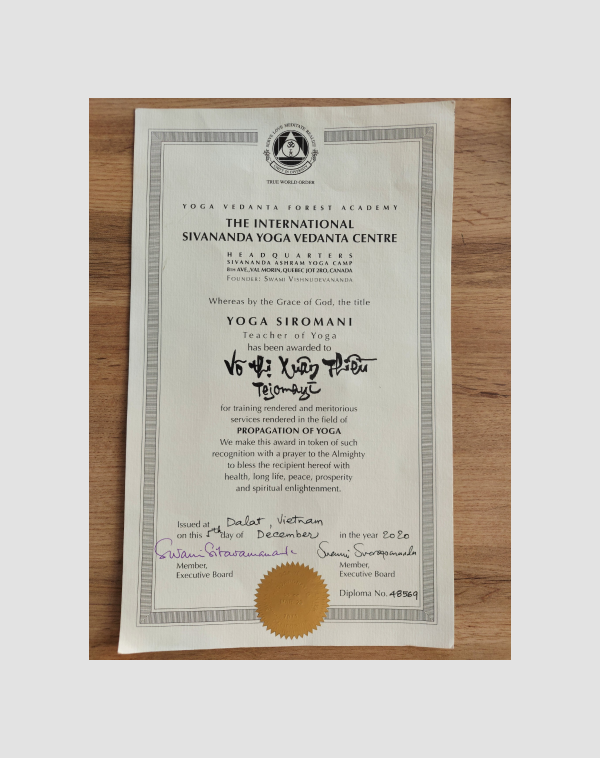 SERVE LOVE MEDITATE REALIZE
TRUE WORLD ORDER
YOGA VEDANTA FOREST ACADEMY
THE INTERNATIONAL
SIVANANDA YOGA VEDANTA CENTRE
HEADQUARTERS
SIVANANDA ASHRAM YOGA CAMP
8TH AVE., VAL MORIN, QUEBEC JOT 2RO, CANADA
FOUNDER: SWAMI VISHNUDEVANANDA
Whereas by the Grace of God, the title
YOGA SIROMANI
Teacher of Yoga
has been awarded to
Võ Thị Xuân Thiều
Tejomayī
for training rendered and meritorious
services rendered in the field of
PROPAGATION OF YOGA
We make this award in token of such
recognition with a prayer to the Almighty
to bless the recipient hereof with
health, long life, peace, prosperity
and spiritual enlightenment.
Issued at Dalat, Vietnam
on this 5th day of December in the year 2020
Swami Sitaramananda Swami Swaroopananda
Member, Member,
Executive Board Executive Board
Diploma No. 48569